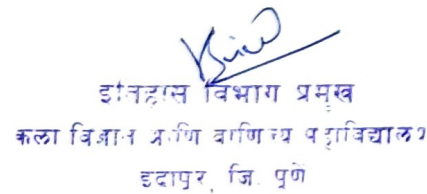 इतिहास विभाग प्रमुख
कला विज्ञान आणि वाणिज्य महाविद्यालय
इंदापुर, जि. पुणे